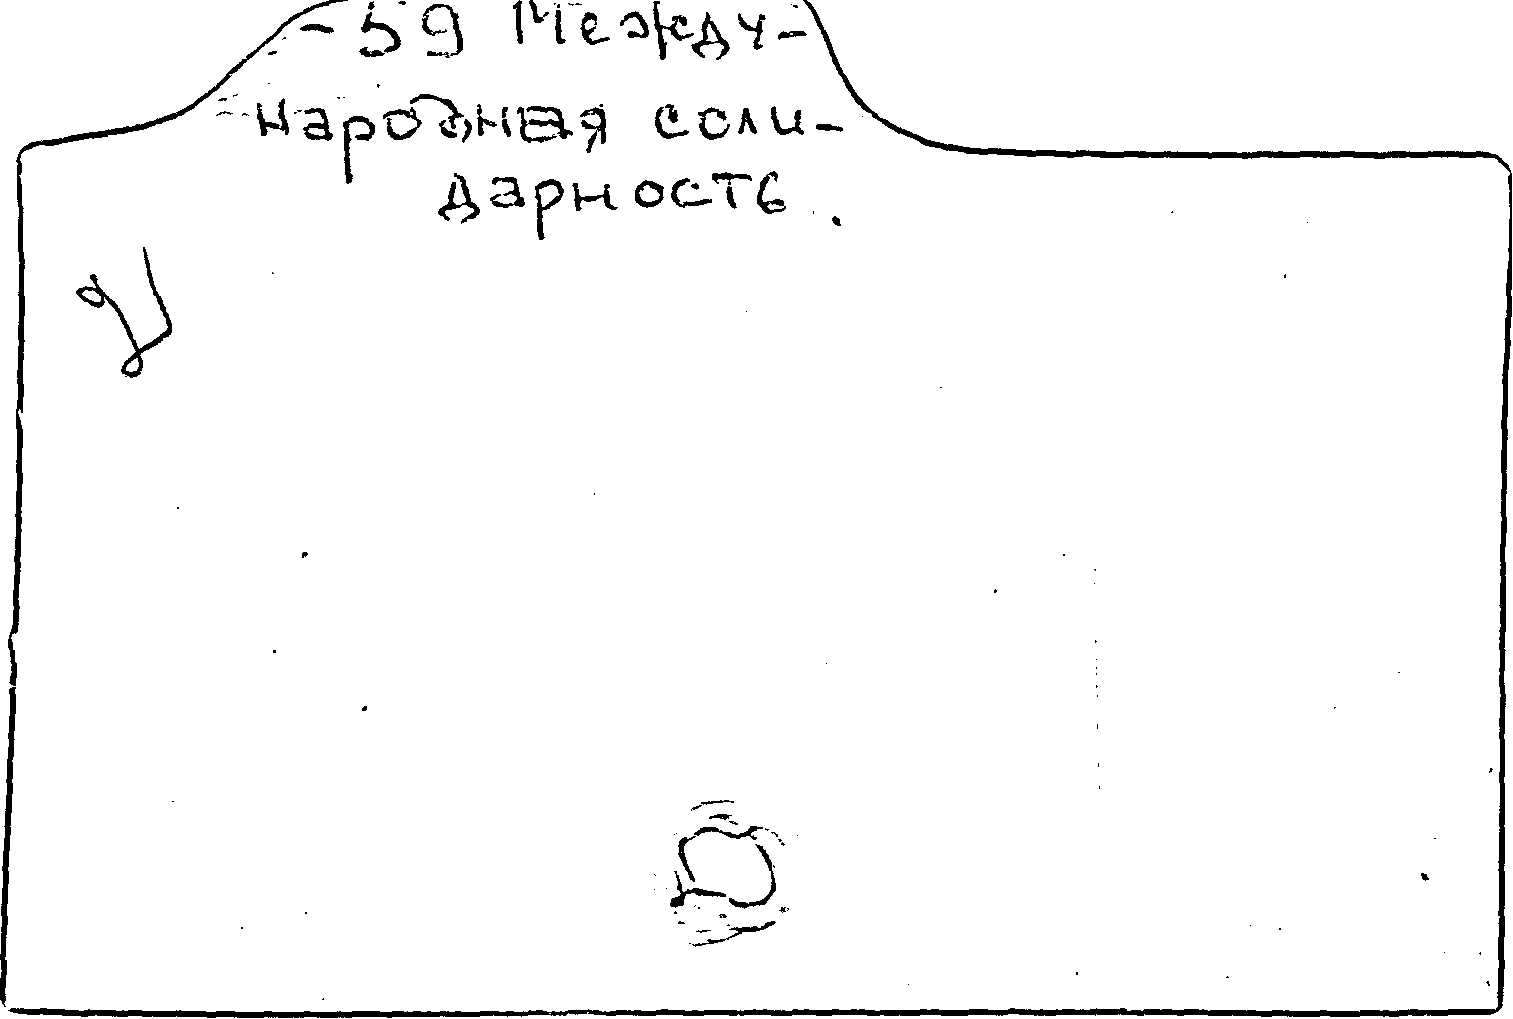 -59 Между-
народная соли-
дарность.